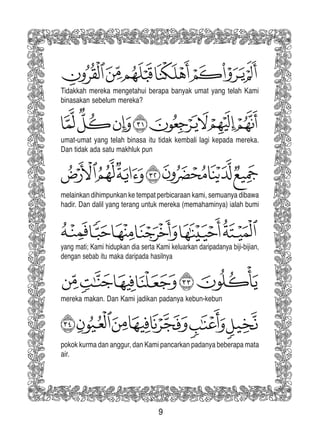 أَلَمْ يَرَوْا۟ كَمْ أَهْلَكْنَا قَبْلَهُم مِّنَ ٱلْقُرُونِ
Tidakkah mereka mengetahui berapa banyak umat yang telah Kami
binasakan sebelum mereka?
أَنَّهُمْ إِلَيْهِمْ لَا يَرْجِعُونَ ﴿٣١﴾ وَإِن كُلٌّ لَّمَّا
umat-umat yang telah binasa itu tidak kembali lagi kepada mereka.
Dan tidak ada satu makhluk pun
جَمِيعٌ لَّدَيْنَا مُحْضَرُونَ ﴿٣٢﴾ وَءَايَةٌ لَّهُمُ ٱلْأَرْضُ
melainkan dihimpunkan ke tempat perbicaraan kami, semuanya dibawa
hadir. Dan dalil yang terang untuk mereka (memahaminya) ialah bumi
ٱلْمَيْتَةُ أَحْيَيْنَٰهَا وَأَخْرَجْنَا مِنْهَا حَبًّا فَمِنْهُ
yang mati; Kami hidupkan dia serta Kami keluarkan daripadanya biji-bijian,
dengan sebab itu maka daripada hasilnya
يَأْكُلُونَ ﴿٣٣﴾ وَجَعَلْنَا فِيهَا جَنَّٰتٍ مِّن
mereka makan. Dan Kami jadikan padanya kebun-kebun
نَّخِيلٍ وَأَعْنَٰبٍ وَفَجَّرْنَا فِيهَا مِنَ ٱلْعُيُونِ ﴿٣٤﴾
pokok kurma dan anggur, dan Kami pancarkan padanya beberapa mata
air.
9